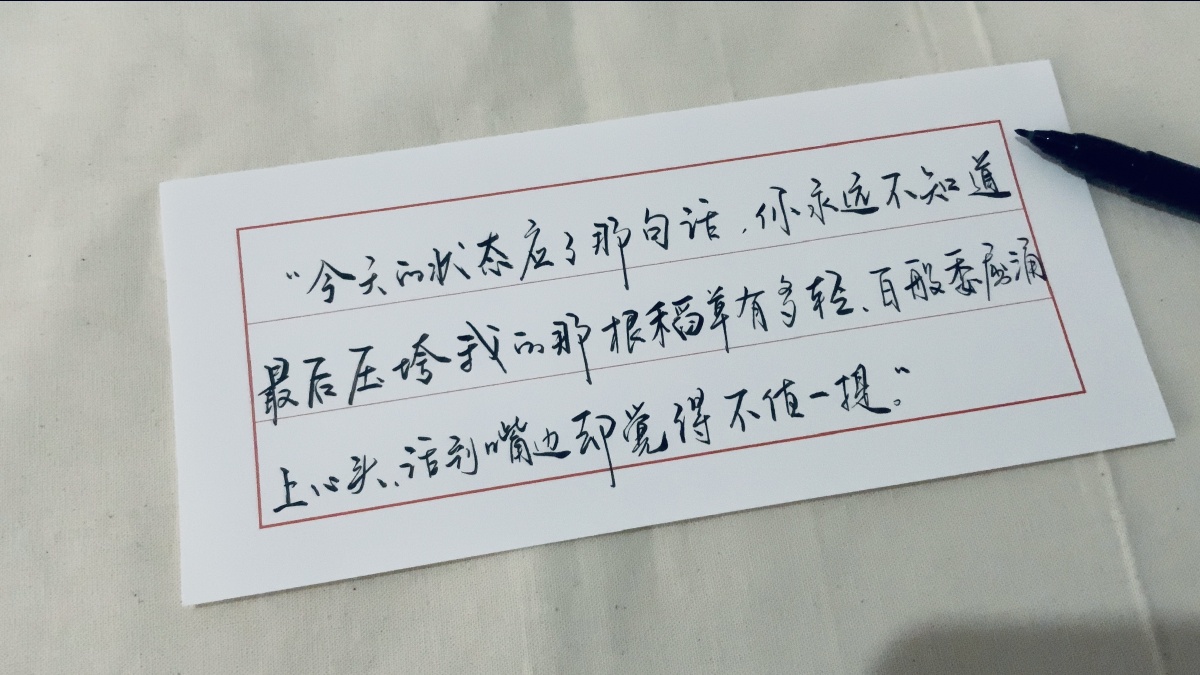 “今天的状态应了那句话,你永远不知道
最后压垮我的那根稻草有多轻、百般委屈涌
上心头、话到嘴边却觉得不值一提。”